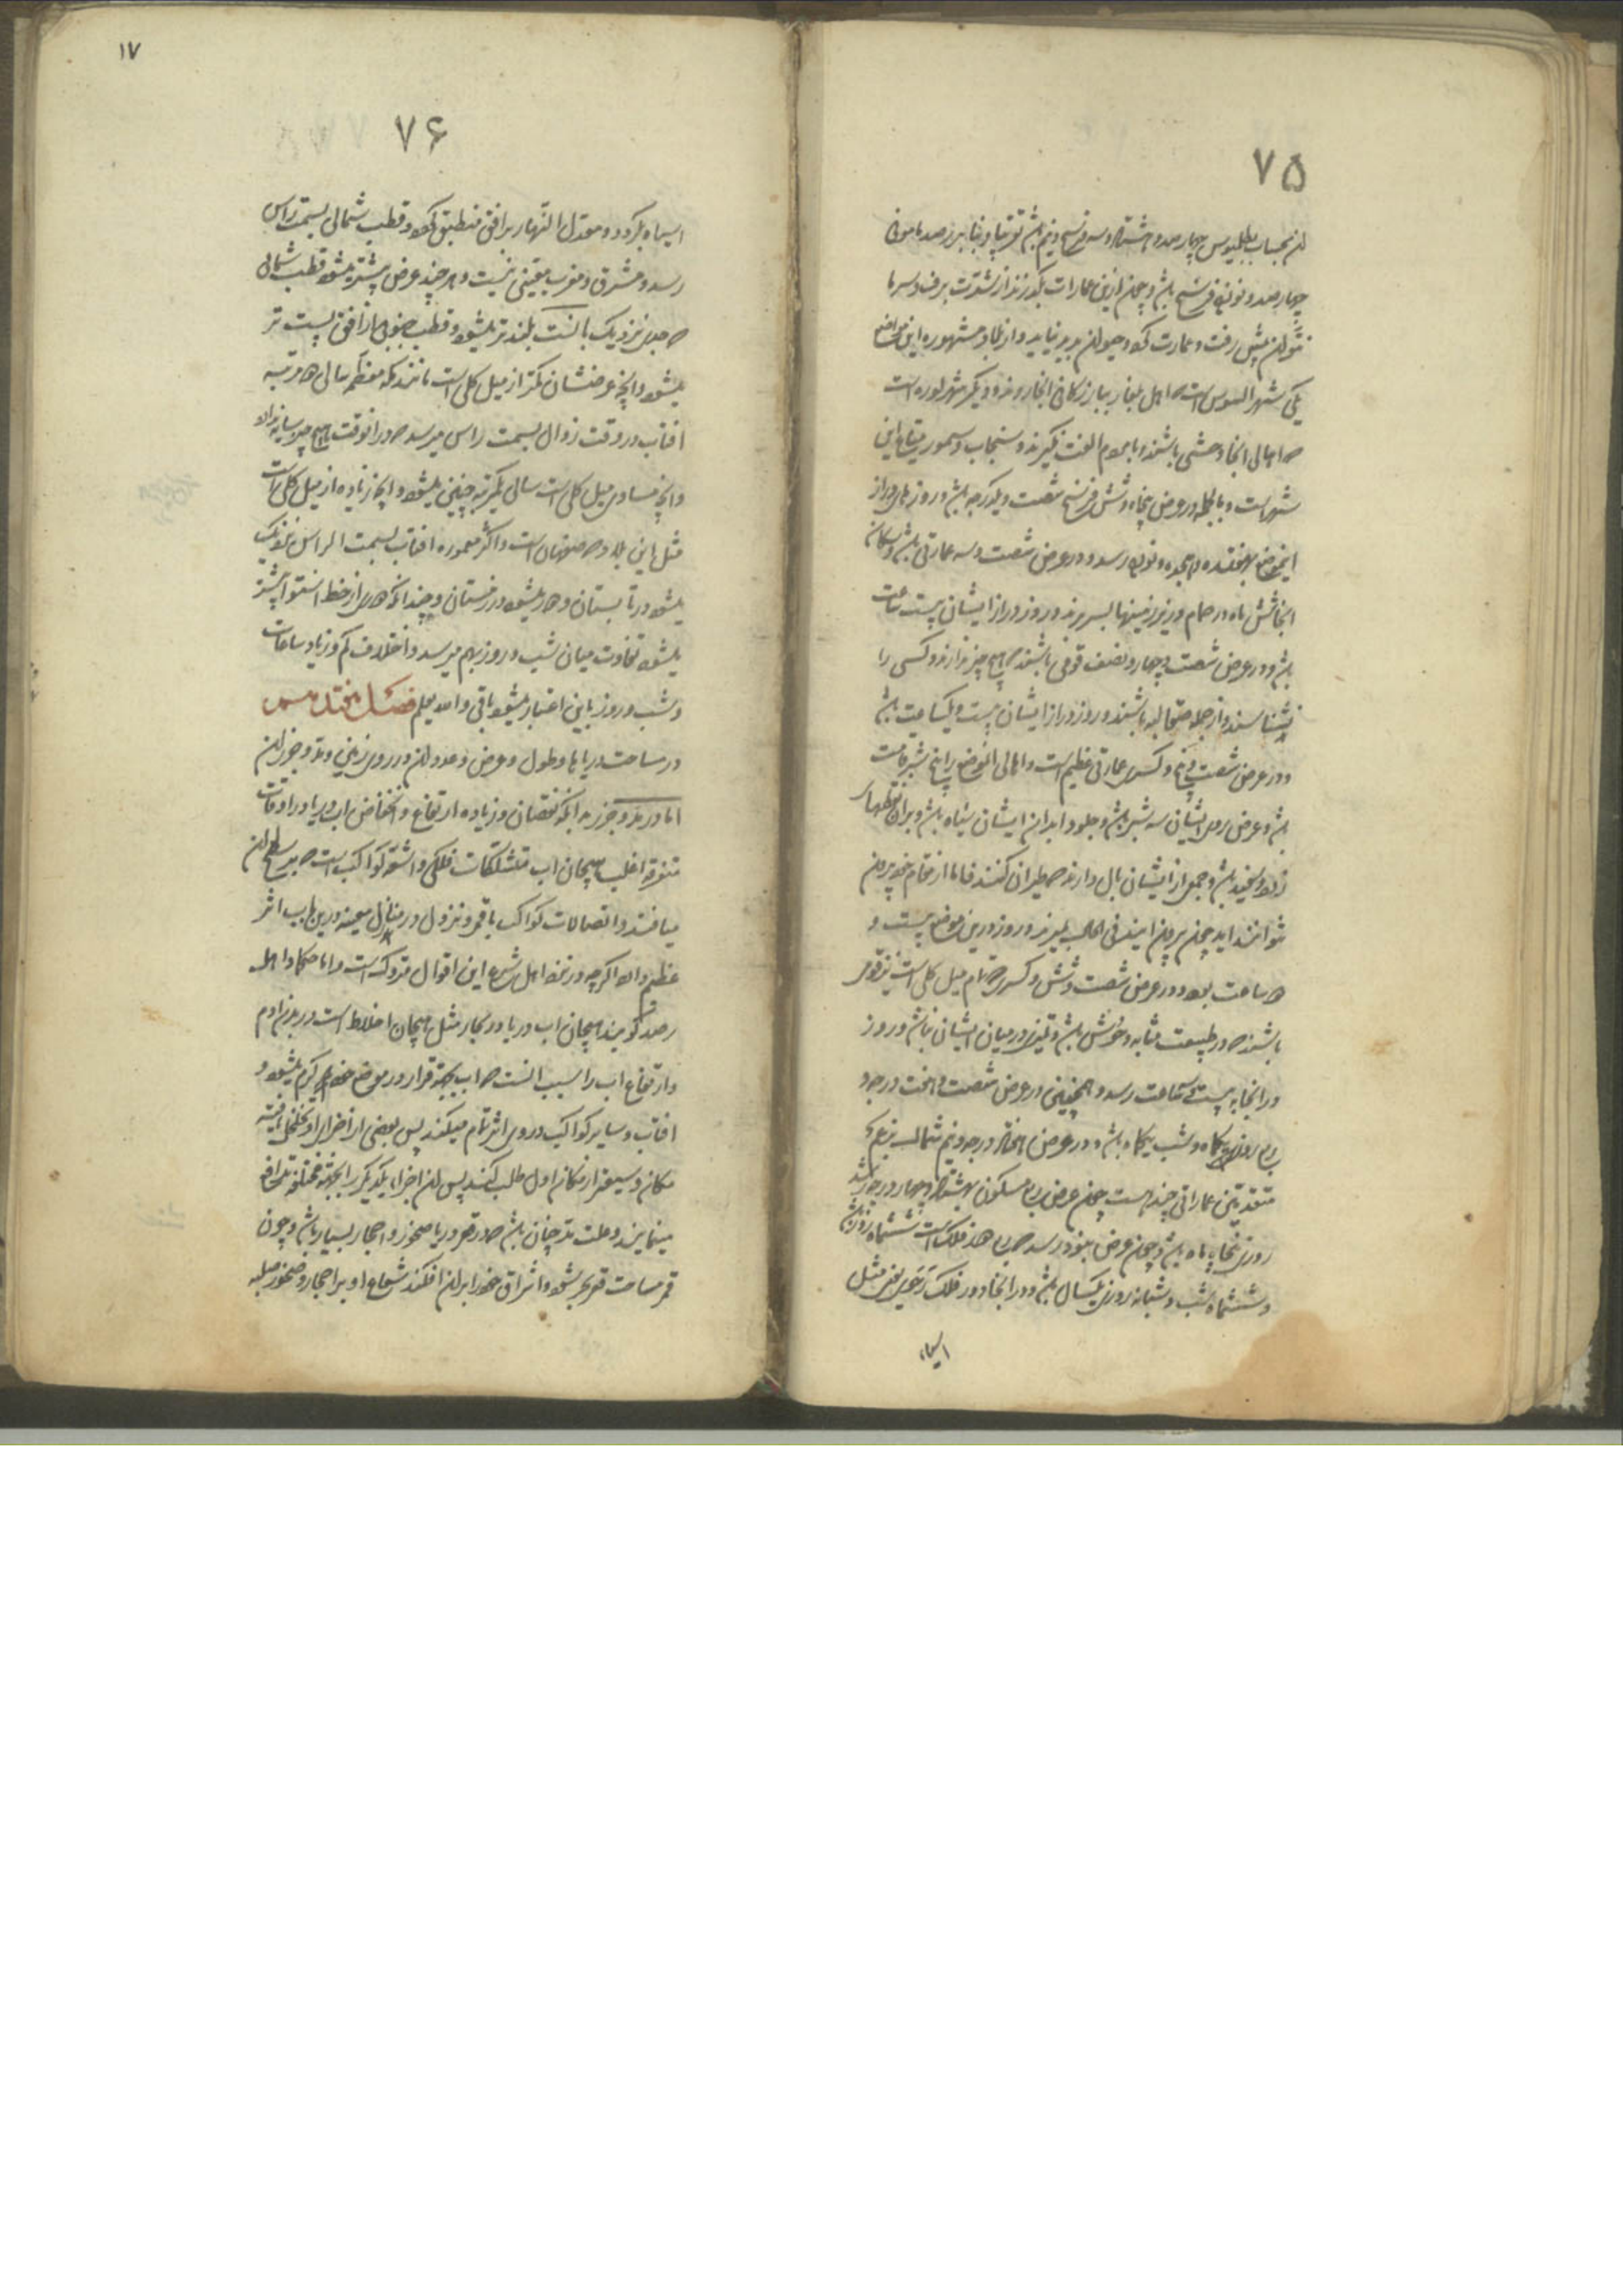 ۷۵
بحساب بطلمیوس چهارصد و هشتاد و سه فرسخ و نیم باشد تقریبا و بنابر رصد مامونی
چهارصد و نود فرسخ باشد و چون ازین عمارات بگذرند از شدت برف و سرما
نتوان پیش رفت و عمارت کرد و حیوان پدید نیاید و از بلاد مشهوره این مواضع
یکی شهر است که اهل بلغار ببازرگانی انجا روند و دیگر شهر است
که اهالی انجا وحشی باشند با مردم الفت نگیرند و سنجاب و سمور متاع این
شهر است و بالجمله در عرض پنجاه و شش فرسخ شصت و یکدرجه باشد و روزهای دراز
رسد و در عرض شصت و سه عمارتی باشد و سکان
انجا شش ماه در حمام و زیر زمینها بسر برند و روز دراز ایشان بیست ساعت
باشد و در عرض شصت و چهار و نصف قومی باشند که هیچ چیز ندارند و کسی را
نشناسند و از جمله صقالبه باشند و روز دراز ایشان بیست و یکساعت باشد
و در عرض شصت و پنج و کسری عمارتی عظیم است و اهالی انموضع را پنج شبر قامت
باشد و عرض روی ایشان سه شبر باشد و جلود ابدان ایشان سیاه باشد و بران نقطهای
زرد و سفید باشد و جمعی از ایشان بال دارند که طیران کنند فاما از مقام خود بیرون
نتوانند اید چون بیرون ایند فی الحال بمیرند و روز درین موضع بیست و
دو ساعت بود و در عرض شصت و شش و کسری که تمام میل کلی است نیز قومی
باشند که در طبیعت مشابه وحوش باشد و تمیز در میان ایشان نباشد و روز
در انجا به بیست و چهار ساعت رسد و همچنین در عرض شصت و هفت درجه و
ربع روزی یکماه و شب یکماه باشد و در عرض هفتاد درجه و نیم شمالی بزعم
متقدمین عماراتی چند هست چون عرض ربع مسکون بهشتاد و چهار درجه رسد
روزی پنجاه باشد و چون عرض بنود رسد ششماه روز باشد
و ششماه شب و شبانه روزی یکسال باشد و در انجا دور فلک رحوی یعنی مثل
اسیاء
۱۷
۷۶
اسیاه بگردد و معدل النهار بر افق منطبق گردد و قطب شمالی بسمت راس
رسد و مشرق و مغرب یقینی نیست و هر چند عرض بیشتر میشود قطب شمالی
که جدی نزدیک بانست بلندتر میشود و قطب جنوبی از افق پست تر
میشود و آنچه عرضشان کمتر از میل کلی است مانند مکه معظمه سالی دو مرتبه
افتاب در وقت زوال بسمت راس میرسد که در انوقت هیچ چیز سایه ندارد
و آنچه مساوی میل کلی است سالی یکمرتبه چنین میشود و آنچه زیاده از میل کلی است
مثل این بلاد که صفهان است و اکثر معموره افتاب بسمت الراس نزدیک
میشود در تابستان و دور میشود در زمستان و چندانکه دوری از خط استوا بیشتر
میشود تفاوت میان شب و روز بهم میرسد و اختلاف کم و زیاد ساعات
و شب و روز باین اعتبار میشود باقی والله یعلم فصل هفتدهمین
در مساحت دریاها و طول و عرض و عدد ان در روی زمین و مد و جزر ان
اما در مد و جزر بدانکه نقصان و زیاده ارتفاع و انخفاض اب دریا در اوقات
متفرقه اغلب هیجان اب متشکلات فلکی و اشعه کواکب است که بر سطح ان
میافتد و اتصالات کواکب با قمر و نزول در منازل معینه درین باب اثر
عظیم دارد اگر چه در نزد اهل شرع این اقوال متروک است و اما حکما و اهل
رصد گویند هیجان اب دریا در بحار مثل هیجان اخلاط است در بدن ادم
و ارتفاع اب را سبب انست که اب بجهة قرار در موضع خود گرم میشود و
افتاب و سایر کواکب در وی اثر تمام میکند پس بعضی از اجزای او تخلخل یافته
مکان وسیعتر از مکان اول طلب کنند پس ان اجزاء یکدیگر را بجهة مختلفه تدافع
مینمایند و علت مد چنان باشد که در قعر دریا صخور و احجار بسیار باشد و چون
قمر مسامت قعر بحر شود و اشراق خود را بران افکند شعاع او بر احجار و صخور صلبه